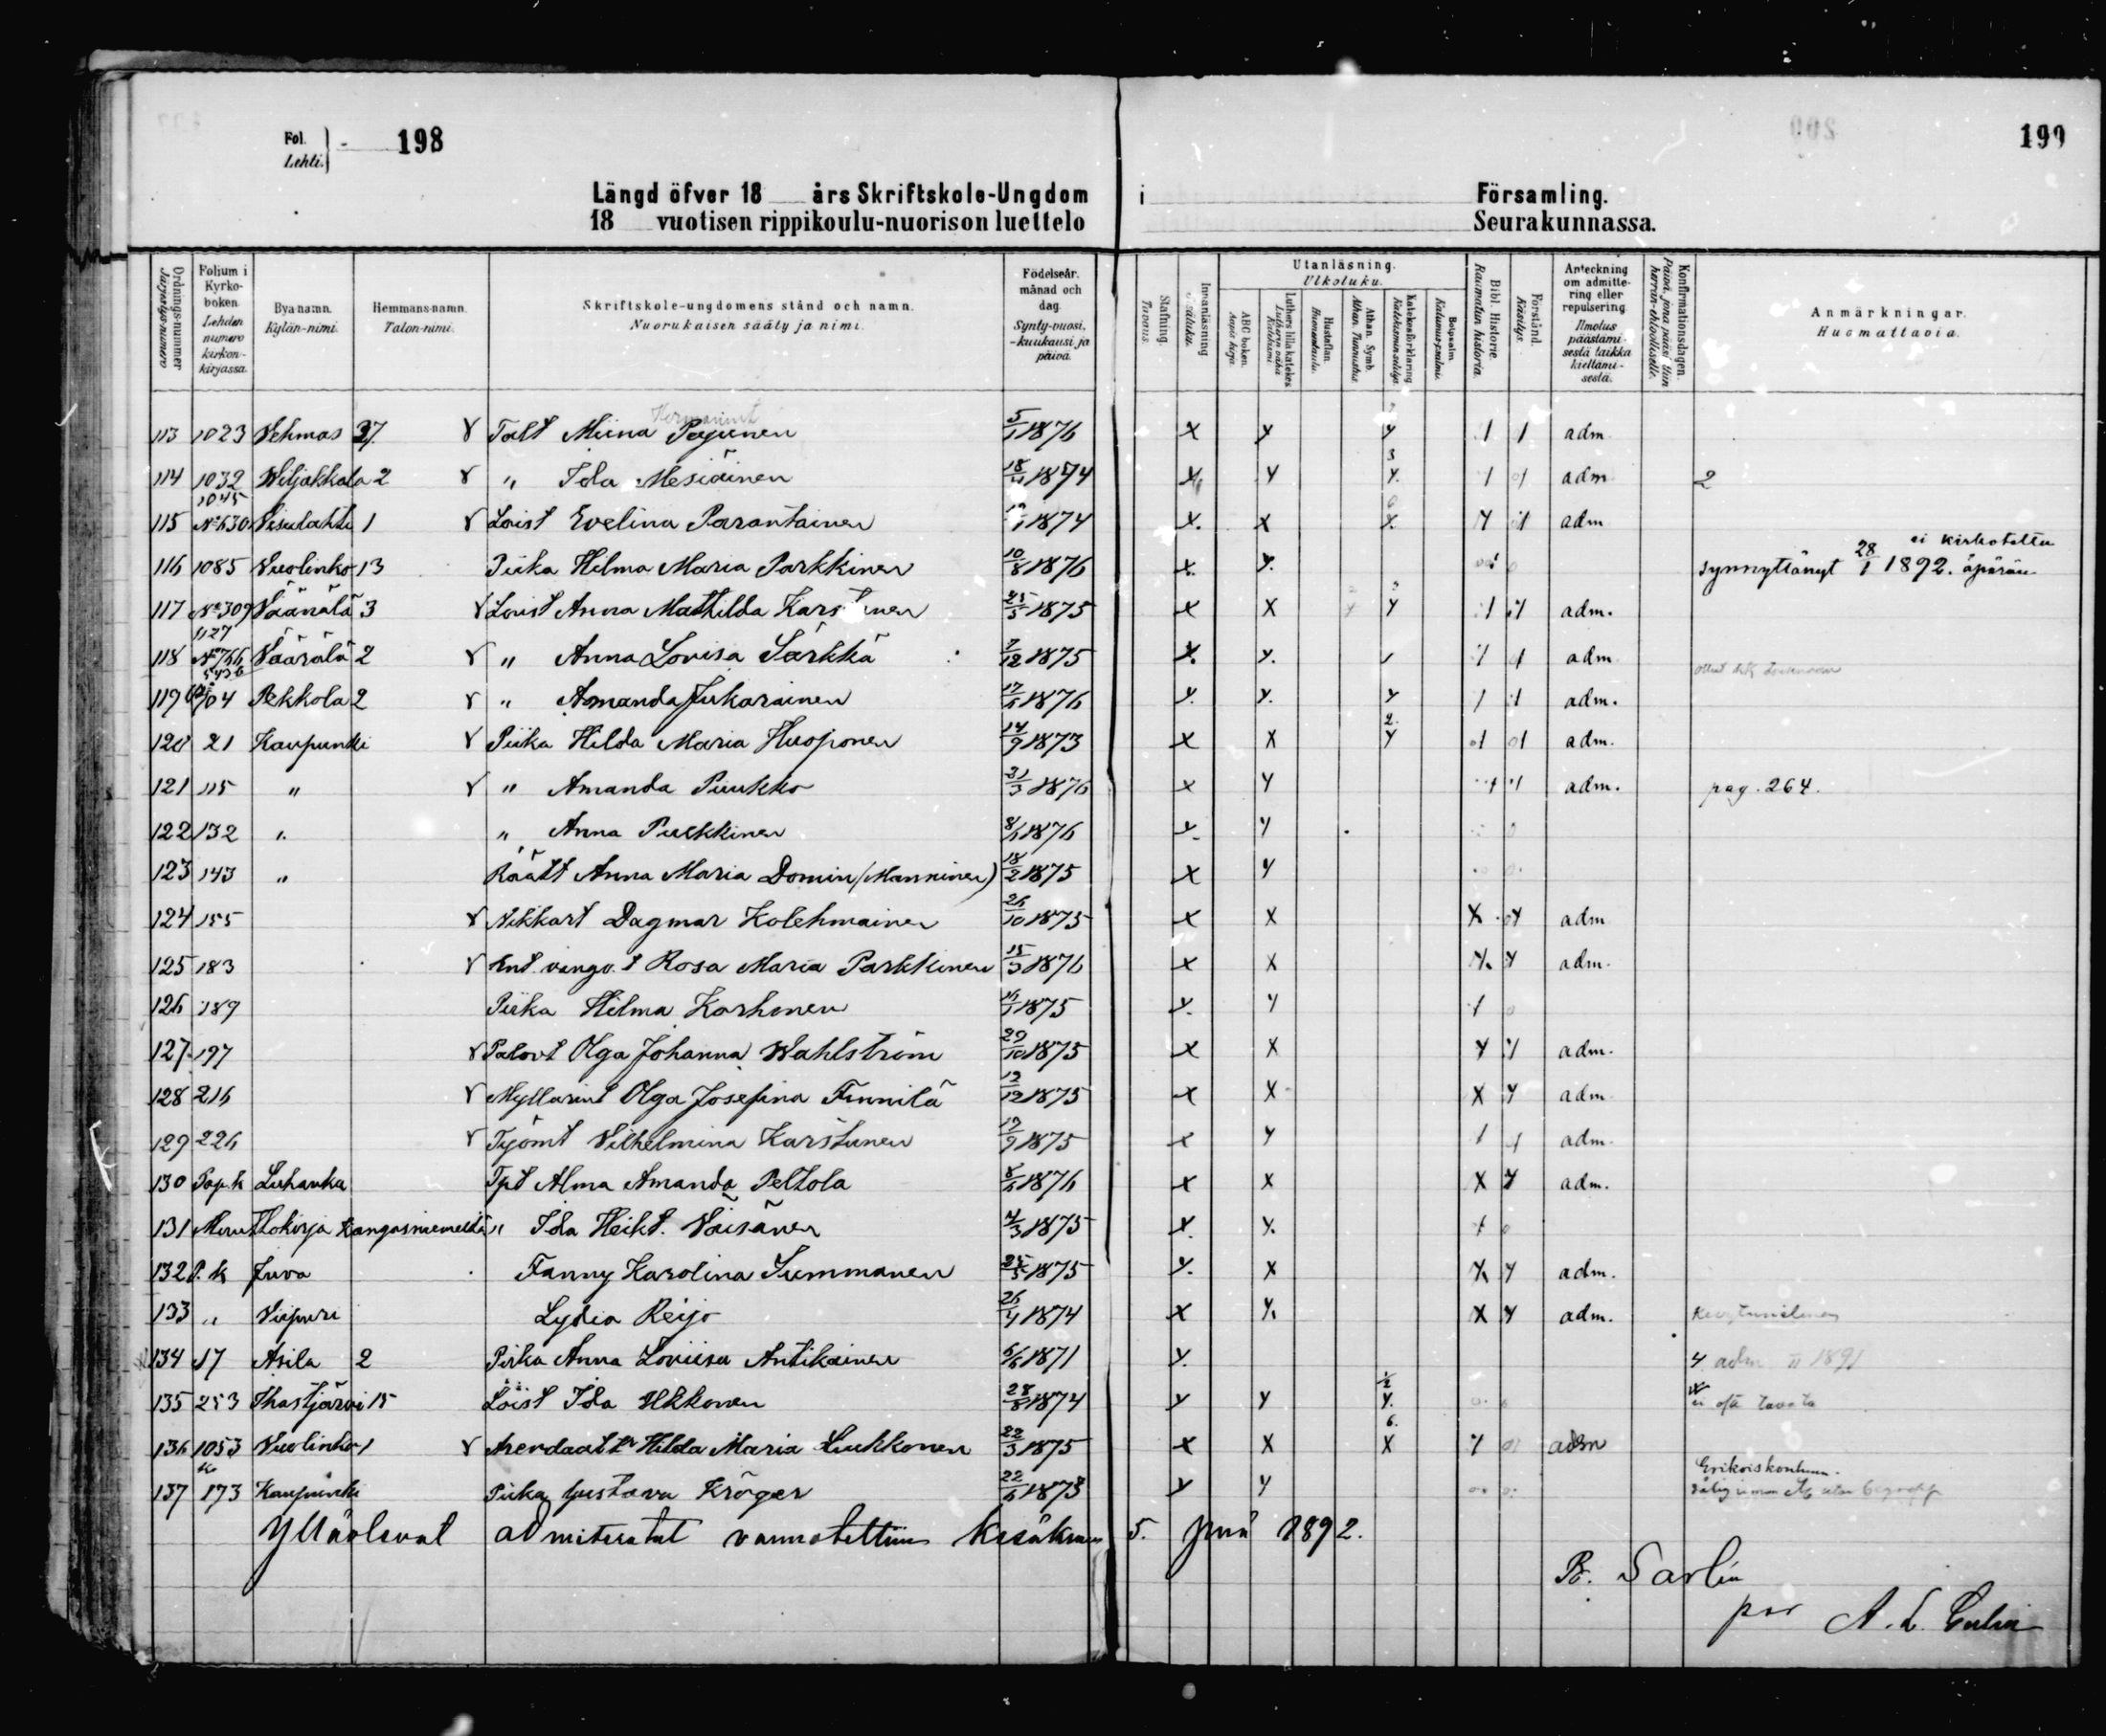 Fol. Lehti. 198
199
Längd öfver 18 års Skriftskole-Ungdom i Församling.
18 vuotisen rippikoulu-nuorison luettelo Seurakunnassa.
Ordnings-nummer Järjestys-numero
Folium i Kyrko-boken. Lehden numero kirkon-kirjassa.
Bya-namn. Kylän-nimi.
Hemmans-namn. Talon-nimi.
Skriftskole-ungdomens stånd och namn. Nuorukaisen sääty ja nimi.
Födelseår, månad och dag. Synty-vuosi, -kuukausi ja päivä.
Stafning. Tavaus.
Innanläsning Sisäluku.
Utanläsning. Ulkoluku.
ABC boken. Aapis kirja
Luthers lilla katekes. Lutherin vähä katekismi
Hustaflan. Huoneentaulu.
Athan. Symb. Athan. Tunnustus.
Katekesförklaring Katekismin selitys.
Botpsalm. Katumus-psalmi.
Bibl. Historie. Raamatun historia.
Förstånd. Käsitys.
Anteckning om admitte-ring eller repulsering. Ilmotus päästämi-sestä taikka kieltämi-sestä.
Konfirmationsdagen. Päivä, jona pääsi Herran-ehtoolliselle.
Anmärkningar. Huomattavia.
113 1023 Vehmas 37 Talt Miina Pajunen 5/1 1876 x y y 1 1 adm
114 1032 Viljakkala 2 " Ida Mesiäinen 18/4 1874 x y 3 y. 1 adm 2
1045
115 No 630 Visulahti 1 Loist Evelina Parantainen 1874 x. x x. adm
116 1085 Vuolinko 13 Piika Hilma Maria Parkkinen 10/8 1876 x. y. synnyttänyt 28/1 1892. äpärän ei kirkotettu
117 No 309 Väänälä 3 Loist Anna Mathilda Karstunen 25/5 1875 x x y adm.
1127
118 No 766 Väärälä 2 " Anna Lovisa Särkkä 7/12 1875 x. y. adm
119 104 Pekkola 2 " Amanda Jukarainen 17/6 1876 y. y. y adm.
120 21 Kaupunki Piika Hilda Maria Huoponen 14/9 1873 x x 2. y adm.
121 115 " " Amanda Puukko 31/3 1876 x y adm. pag. 264.
122 132 " " Anna Pulkkinen 1876 y. y
123 143 " Räätt Anna Maria Domin (Manninen) 18/2 1875 x y
124 155 Nikkart Dagmar Kolehmainen 26/10 1875 x x x adm
125 183 Ent. vangv. t Rosa Maria Parkkinen 15/3 1876 x x y. y adm.
126 189 Piika Hilma Korhonen 1875 y. y
127 197 Palovt Olga Johanna Wahlström 29/10 1875 x x y y adm.
128 216 Myllärint Olga Josefina Finnilä 12/12 1875 x x x y adm
129 226 Työmt Vilhelmina Karstunen 19/9 1875 x y adm.
130 Pap.k Luhanka Tpt Alma Amanda Peltola 8/6 1876 x x x y adm.
131 Muuttokirja Kangasniemeltä " Ida Heikt. Väisänen 4/3 1875 x. y.
132 P.k Juva Fanny Karolina Summanen 25/5 1875 y. x y adm.
133 " Viipuri Lydia Reijo 26/4 1874 x y. x y adm.
134 17 Asila 2 Piika Anna Loviisa Antikainen 6/6 1871 y. 4 adm II 1891
135 253 Ihastjärvi 15 Loist Ida Ukkonen 28/8 1874 y y 1/2 y.
136 1053 Vuolinko 1 Arendaatt Hilda Maria Liukkonen 22/3 1875 x x 6. x adm
137 173 Kaupunki Piika Gustava Kröger 22/6 1873 y y Erikoiskouluun.
Ylläolevat admiteratut vannotettiin kesäkuun 5. pnä 1892.
R. Sarlin
par A. L.